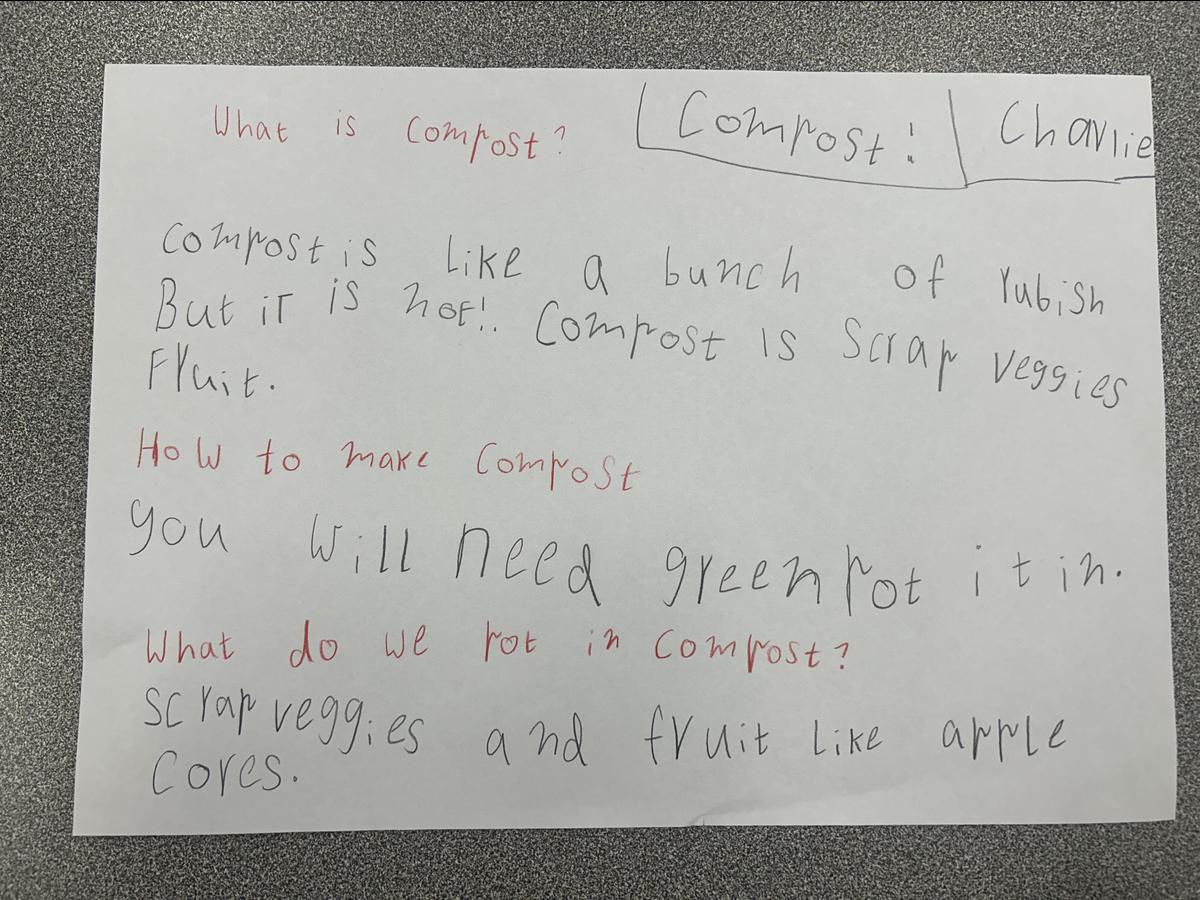 What is compost?
Compost!
Charlie
Compost is like a bunch of rubish
But it is not!. Compost is Scrap veggies
Fruit.
How to make Compost
you will need green pot it in.
What do we pot in compost?
Scrap veggies and fruit like apple
Cores.